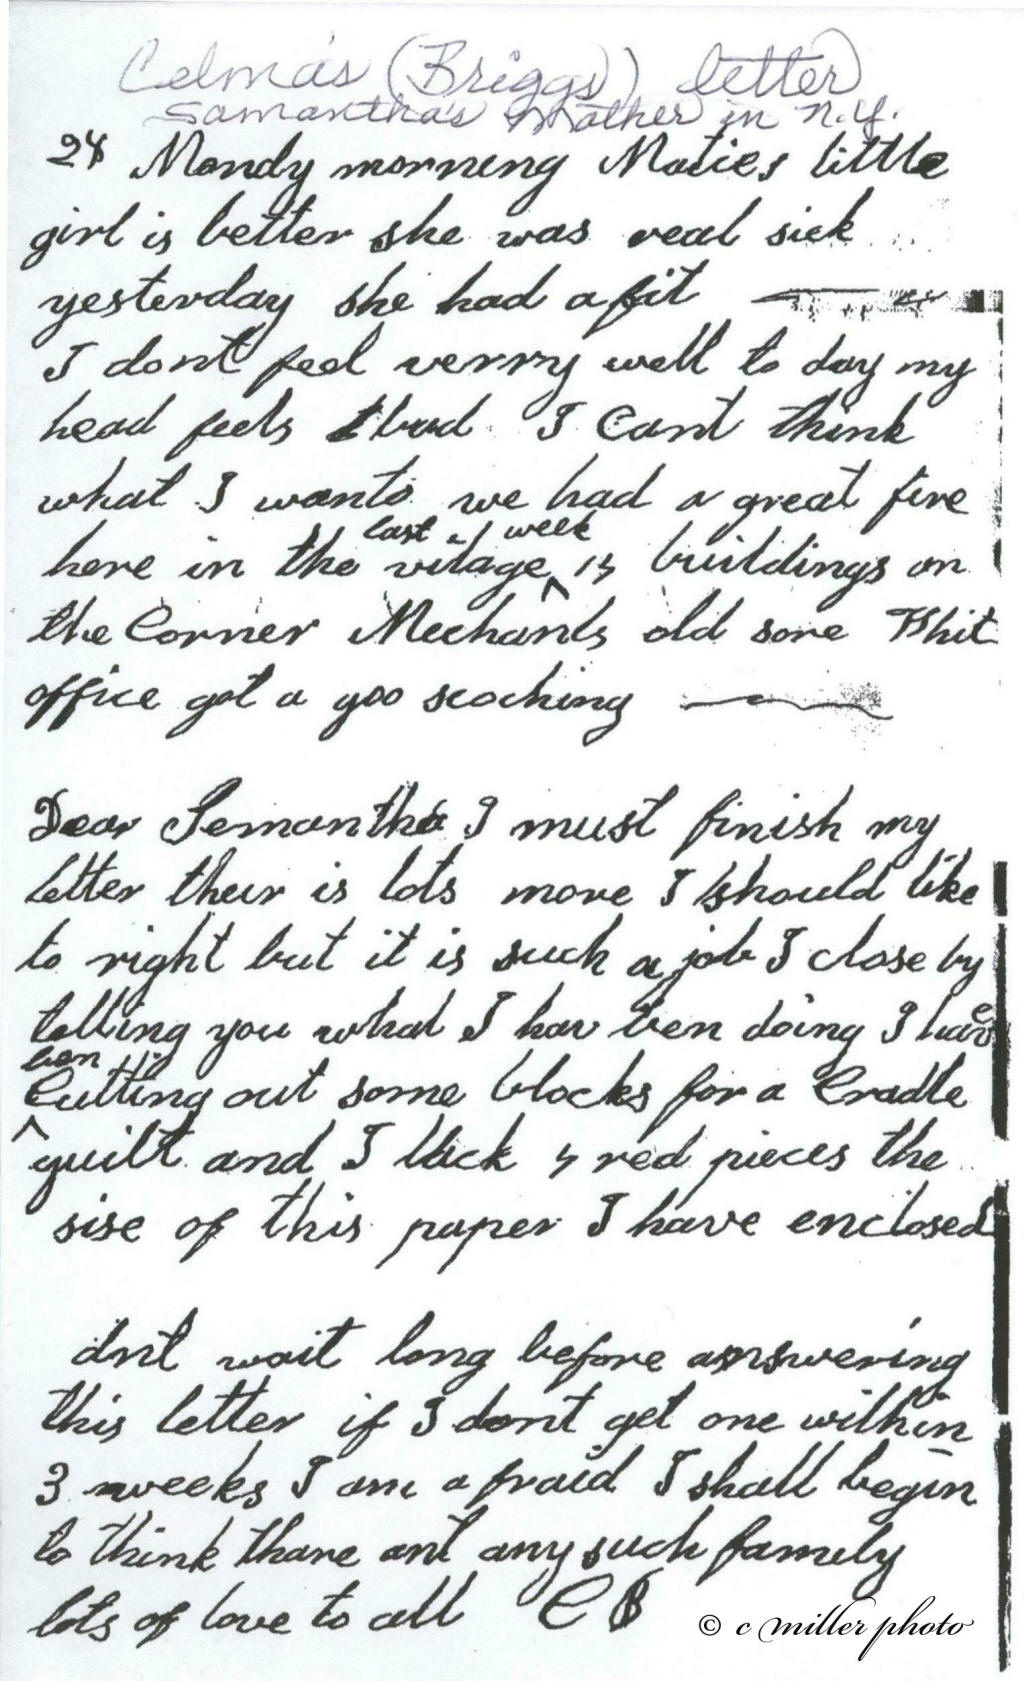 Celma's (Briggs) letter
Samantha's Mother in N.Y.
24 Mondy morneng Maties little
girl is better she was real sick
yesterday she had a fit
I dont feel verry well to day my
head feels bad I Cant think
what I wants we had a great fire
last week
here in the vilage 13 buildings on
the Corner Mechants old sore Whit
office got a goo scoching
Dear Semantha I must finish my
letter their is lots more I should like
to right but it is such a job I close by
telling you what I hav ben doing I hav
ben
Cutting out some blocks for a Cradle
quilt and I lack 4 red pieces the
sise of this paper I have enclosed
dnt wait long before answering
this letter if I dont get one within
3 weeks I am a fraid I shall begin
to think thare ant any such family
lots of love to all C B
© c miller photo